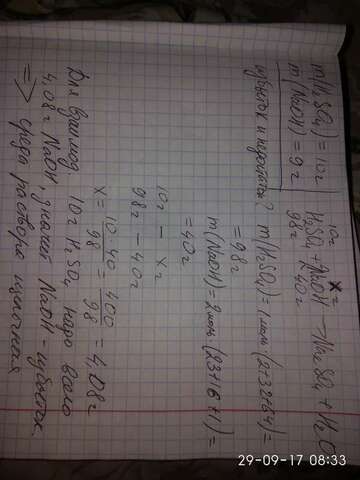 m(H₂SO₄) = 10г
m(NaOH) = 9г
избыток и недостаток?
10г хг
H₂SO₄ + 2NaOH → Na₂SO₄ + H₂O
98г 40г
m(H₂SO₄) = 1моль (2+32+64) =
= 98г
m(NaOH) = 2моль (23+16+1) =
= 40г
10г — хг
98г — 40г
x = 10·40/98 = 400/98 = 4,08г
Для взаимод 10г H₂SO₄ надо было
4,08г NaOH, значит NaOH – избыток.
⇒ среда раствора щелочная
29-09-17 08:33